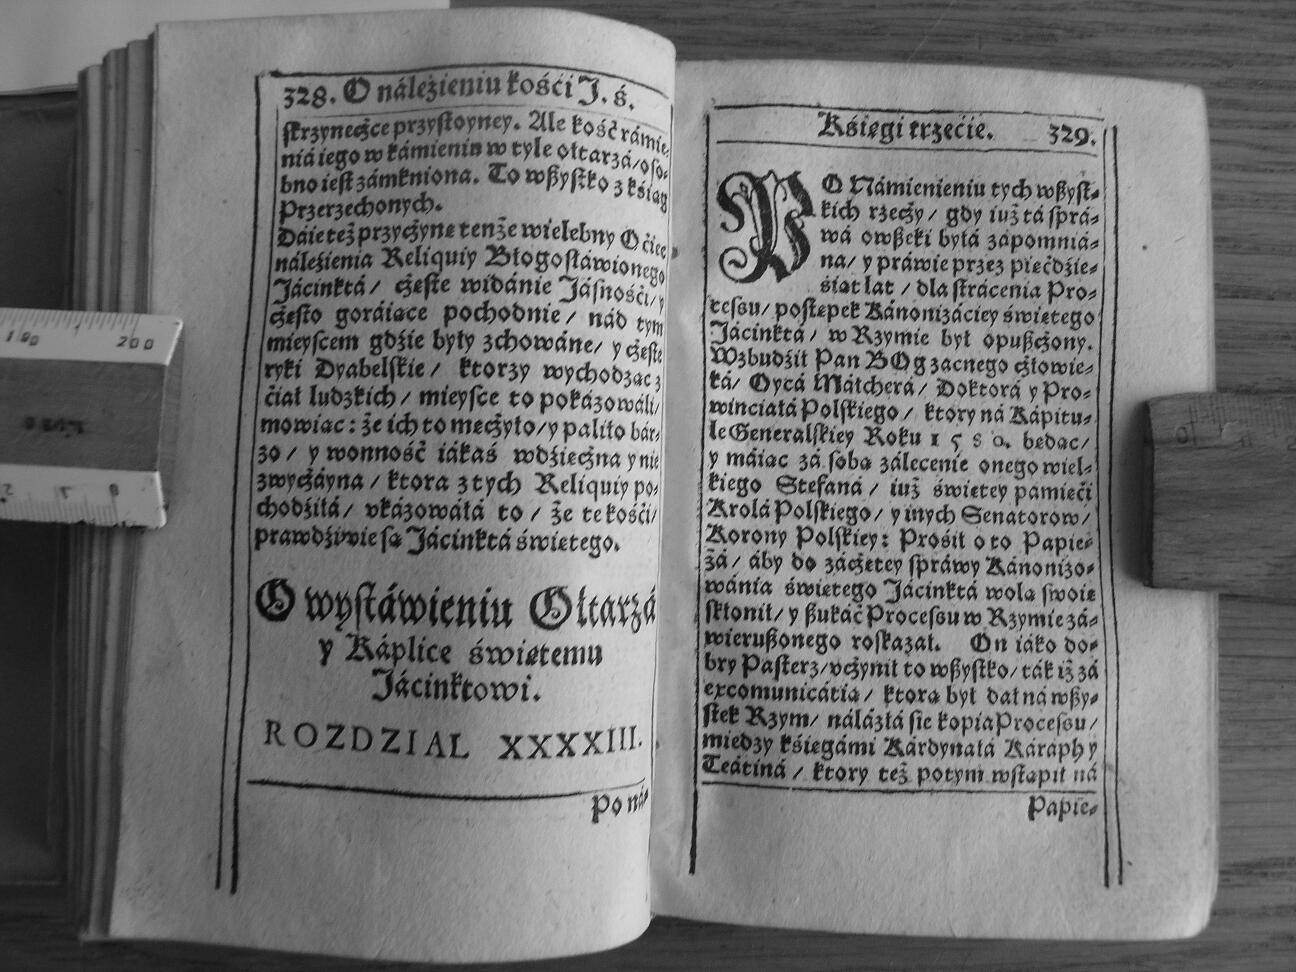 328. O náleźieniu kośći J. ś.
skrzyneczce przystoyney. Ale kość rámie-
niá iego w kámieniu w tyle ołtarzá/ oso-
bno iest zámkniona. To wszystko z ksiąg
Przerzechonych.
Dáie też przyczynę tenże wielebny Oćiec
náleźienia Reliquiy Błogosłáwionego
Jácinktá/ częste widánie Jásnośći/ y
często goráiące pochodnie/ nád tym
mieyscem gdźie były zchowáne/ y częste
ryki Dyabelskie/ ktorzy wychodząc z
ćiał ludzkich/ mieysce to pokázowáli/
mowiąc: że ich to męczyło/ y paliło bár-
zo/ y wonność iákaś wdźięczna y nie
zwyczáyna/ ktora z tych Reliquiy po-
chodźiłá/ vkázowáłá to/ że te kośći/
prawdźiwie są Jácinktá świętego.
O wystáwieniu Ołtarzá
y Káplice świętemu
Jácinktowi.
ROZDZIAL XXXXIII.
Po ná-
Kśięgi trzećie. 329.
PO Námienieniu tych wszyst-
kich rzeczy/ gdy iuż tá sprá-
wá owszeki byłá zápomniá-
na/ y práwie przez pięćdźie-
śiąt lat/ dla strácenia Pro-
cessu/ postępek Kánonizáciey świętego
Jácinktá/ w Rzymie był opuszczony.
Wzbudźił Pan BOg zacnego człowie-
ká/ Oycá Mátcherá/ Doktorá y Pro-
winciałá Polskiego/ ktory ná Kápitu-
le Generalskiey Roku 1580. będąc/
y máiąc zá sobą zálecenie onego wiel-
kiego Stefaná/ iuż świętey pámięći
Krolá Polskiego/ y inych Senatorow/
Korony Polskiey: Prośił o to Papie-
żá/ áby do záczętey spráwy Kánonizo-
wánia świętego Jácinktá wolą swoię
skłonił/ y szukáć Processu w Rzymie zá-
wieruszonego roskazał. On iáko do-
bry Pasterz/ vczynił to wszystko/ ták iż zá
excomunicátią/ ktorą był dał ná wszy-
stek Rzym/ náláżłá się kopia Processu/
między kśięgámi Kárdynałá Káráphy
Teátiná/ ktory też potym wstąpił ná
Papie-
190
200